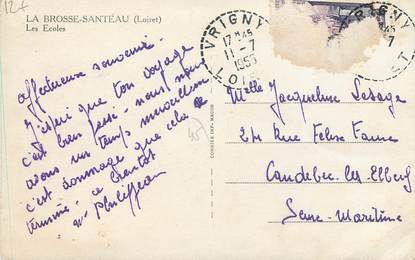 12€
LA BROSSE-SANTEAU (Loiret)
Les Ecoles
Affectueux souvenir.
J'espère que ton voyage
c'est bien passé. nous nous
avons un temps merveilleux
c'est dommage que cela se
termine, à bientôt
VRIGNY
17 H 45
11-7
1955
VRIGNY
45
7
Melle Jacqueline Lesage
24 Rue Felix Faure
Caudebec-les-Elbeuf
Seine-Maritime